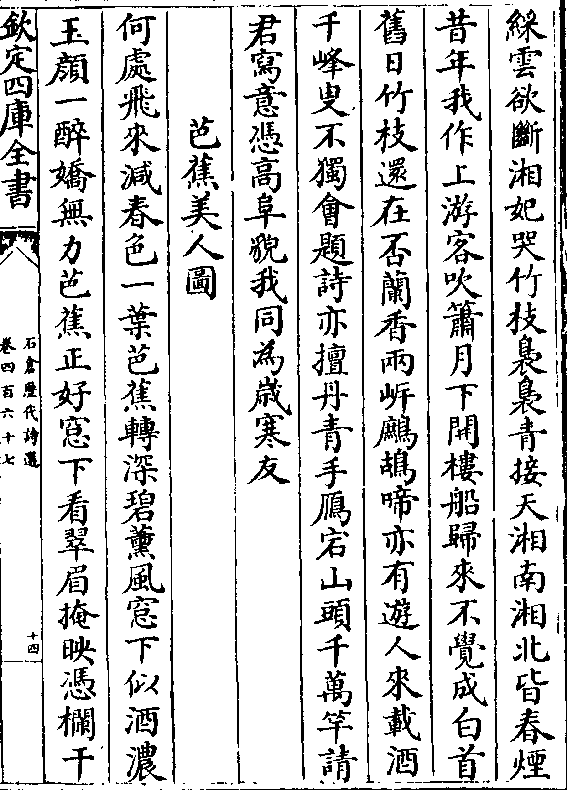 綵雲欲斷湘妃哭竹枝裊裊青接天湘南湘北皆春煙
昔年我作上游客吹簫月下開樓船歸來不覺成白首
舊日竹枝還在否蘭香兩岍鷓鴣啼亦有遊人來載酒
千峰叟不獨㑹題詩亦擅丹青手鴈宕山頭千萬竿請
君寫意憑高阜貌我同為歲寒友
芭蕉美人圖
何處飛來減春色一葉芭蕉轉深碧薰風窓下似酒濃
玉顔一醉嬌無力芭蕉正好窓下看翠眉掩映憑欄干
欽定四庫全書
石倉歷代詩選
卷四百六十七
十四